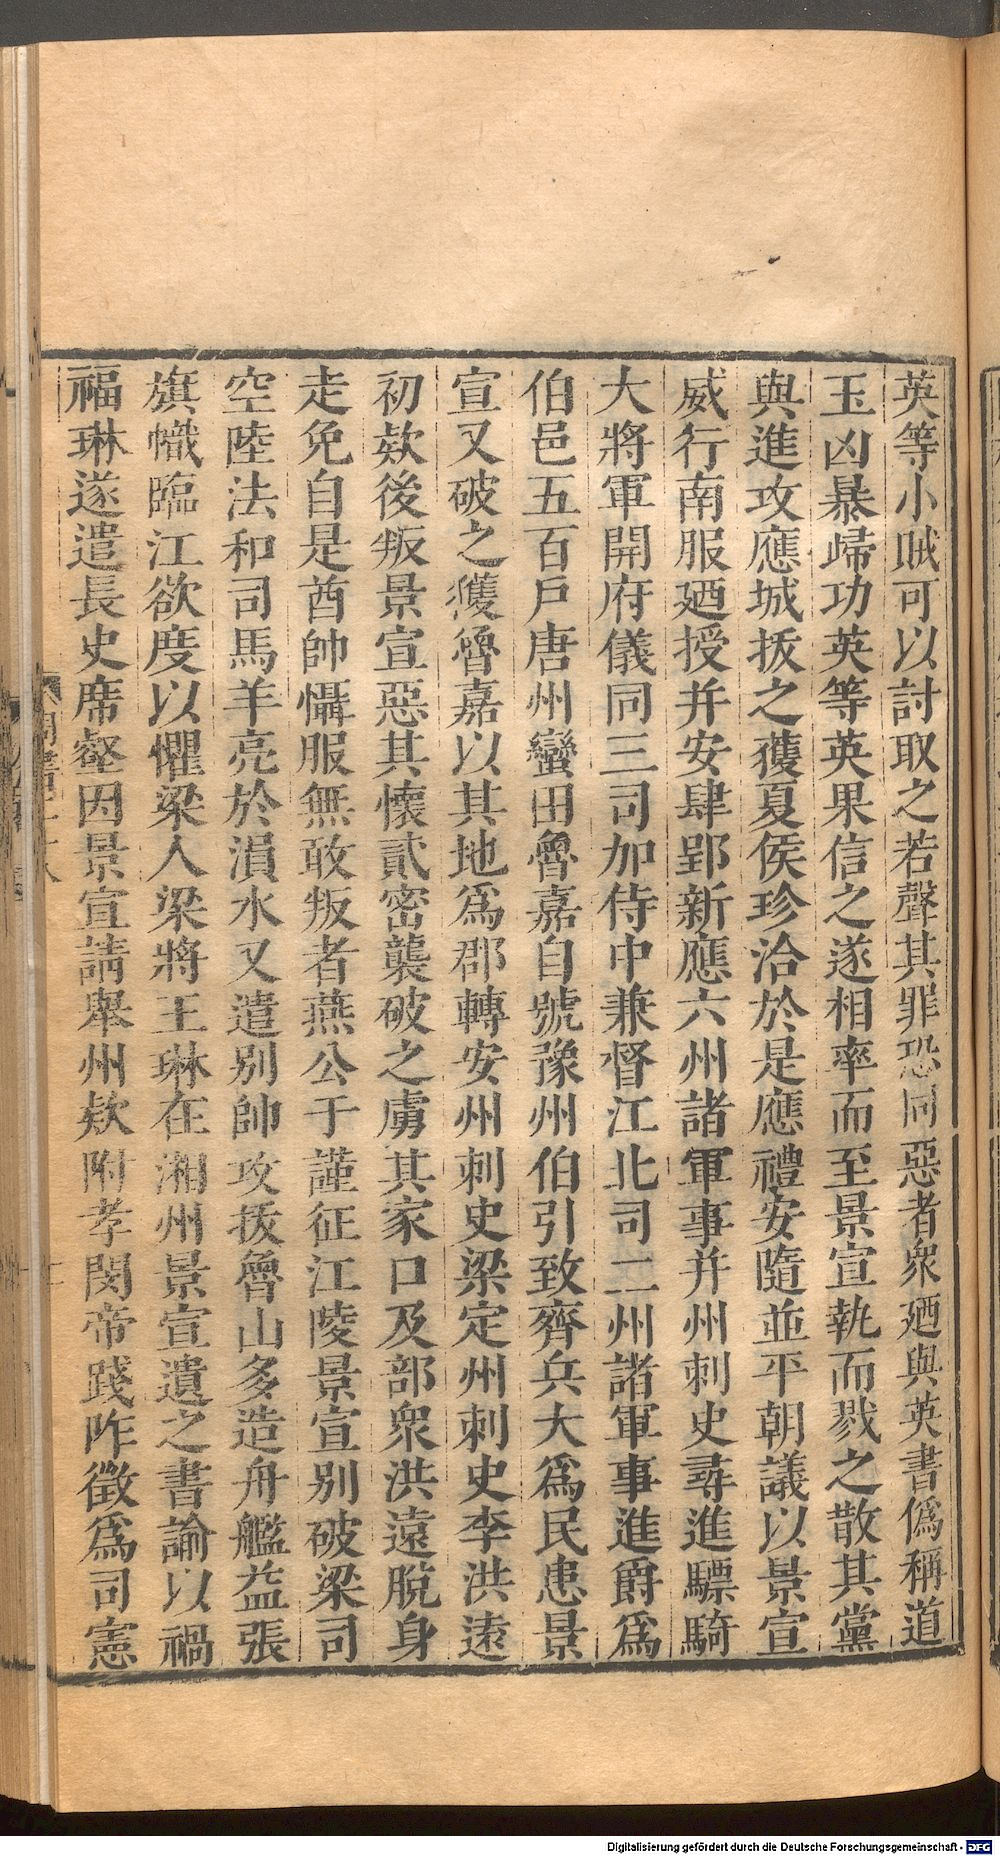 英等小賊可以討取之若聲其罪恐同惡者衆廼與英書僞稱道
玉凶暴歸功英等英果信之遂相率而至景宣執而戮之散其黨
與進攻應城拔之獲夏侯珍洽於是應禮安隨並平朝議以景宣
威行南服廼授并安肆郢新應六州諸軍事并州刺史尋進驃騎
大將軍開府儀同三司加侍中兼督江北司二州諸軍事進爵爲
伯邑五百戶唐州蠻田魯嘉自號豫州伯引致齊兵大爲民患景
宣又破之獲魯嘉以其地爲郡轉安州刺史梁定州刺史李洪遠
初欵後叛景宣惡其懷貳密襲破之虜其家口及部衆洪遠脫身
走免自是酋帥懾服無敢叛者燕公于謹征江陵景宣别破梁司
空陸法和司馬羊亮於溳水又遣别帥攻拔魯山多造舟艦益張
旗幟臨江欲度以懼梁人梁將王琳在湘州景宣遺之書諭以禍
福琳遂遣長史席壑因景宣請舉州欵附孝閔帝踐阼徵爲司憲
Digitalisierung gefördert durch die Deutsche Forschungsgemeinschaft - DFG